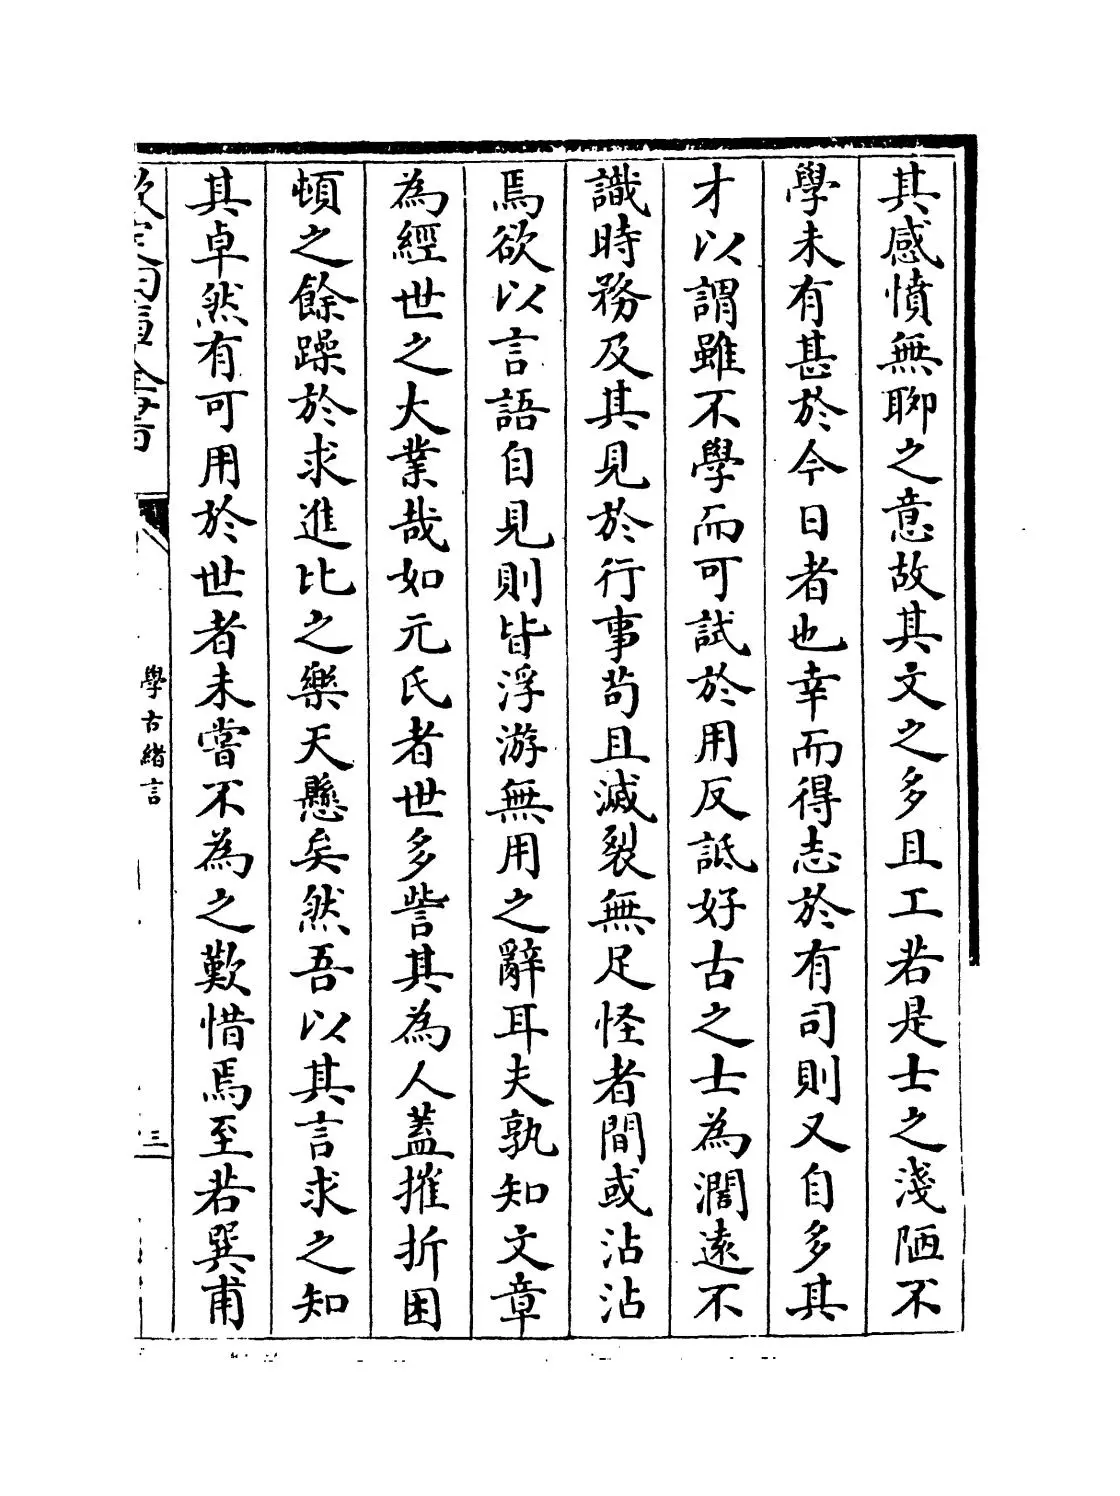 其感憤無聊之意故其文之多且工若是士之淺陋不
學未有甚於今日者也幸而得志於有司則又自多其
才以謂雖不學而可試於用反詆好古之士為濶遠不
識時務及其見於行事茍且滅裂無足怪者間或沾沾
焉欲以言語自見則皆浮游無用之辭耳夫孰知文章
為經世之大業哉如元氏者世多訾其為人蓋摧折困
頓之餘躁於求進比之樂天懸矣然吾以其言求之知
其卓然有可用於世者未嘗不為之歎惜焉至若巽甫
欽定四庫全書
學古緒言
三